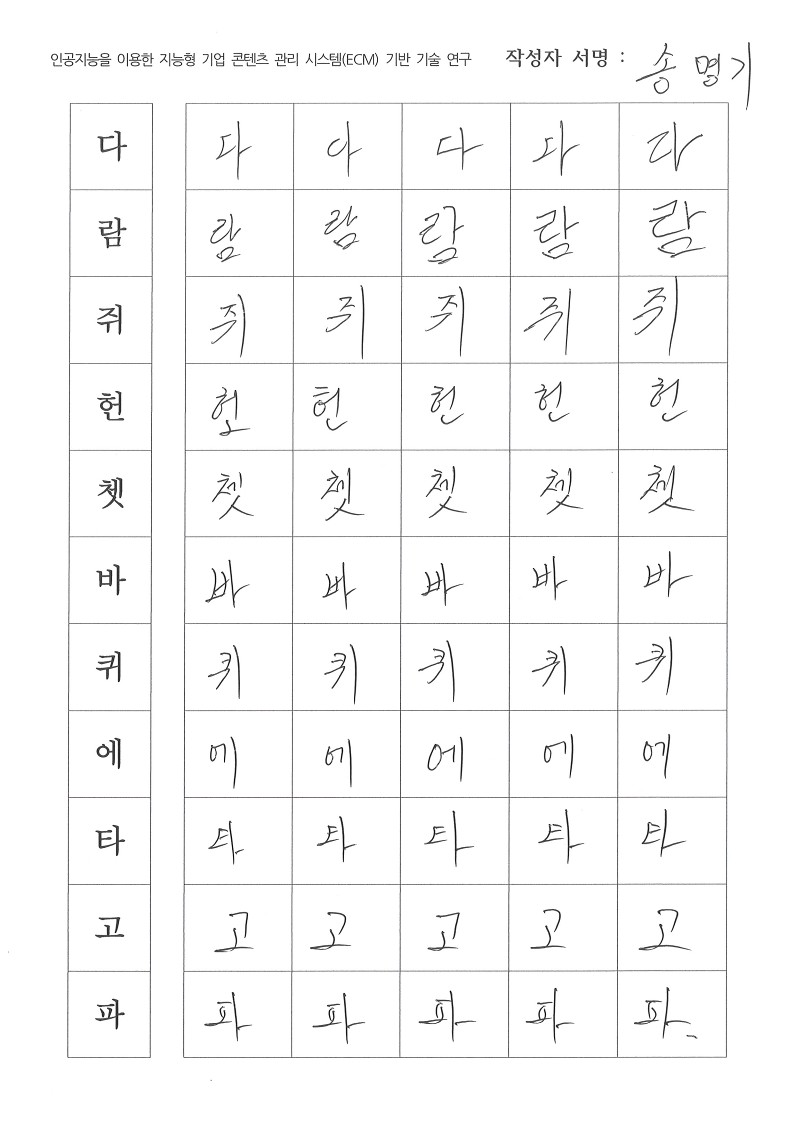 인공지능을 이용한 지능형 기업 콘텐츠 관리 시스템(ECM) 기반 기술 연구 작성자 서명 : 송명기
다 다 아 다 다 다
람 람 람 람 람 람
쥐 쥐 쥐 쥐 쥐 쥐
헌 헌 헌 헌 헌 헌
쳇 쳇 쳇 쳇 쳇 쳇
바 바 바 바 바 바
퀴 퀴 퀴 퀴 퀴 퀴
에 에 에 에 에 에
타 타 타 타 타 타
고 고 고 고 고 고
파 파 파 파 파 파